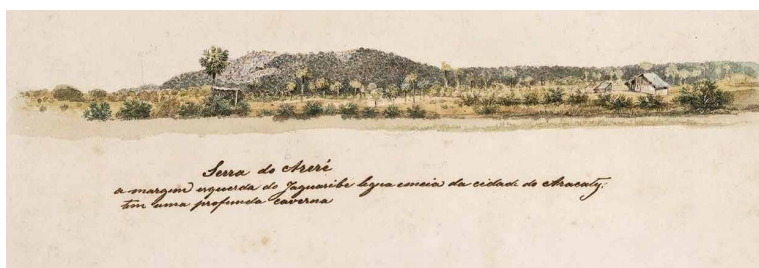 Serra do Areré
a margem esquerda do Jaguaribe legua emeia da cidade do Aracaty:
tem uma profunda caverna